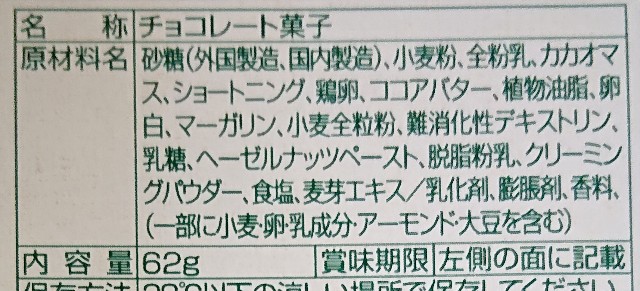 名称 チョコレート菓子
原材料名 砂糖(外国製造、国内製造)、小麦粉、全粉乳、カカオマ
ス、ショートニング、鶏卵、ココアバター、植物油脂、卵
白、マーガリン、小麦全粒粉、難消化性デキストリン、
乳糖、ヘーゼルナッツペースト、脱脂粉乳、クリーミン
グパウダー、食塩、麦芽エキス/乳化剤、膨脹剤、香料、
(一部に小麦・卵・乳成分・アーモンド・大豆を含む)
内容量 62g 賞味期限 左側の面に記載
保存方法 28℃以下の涼しい場所で保存してください